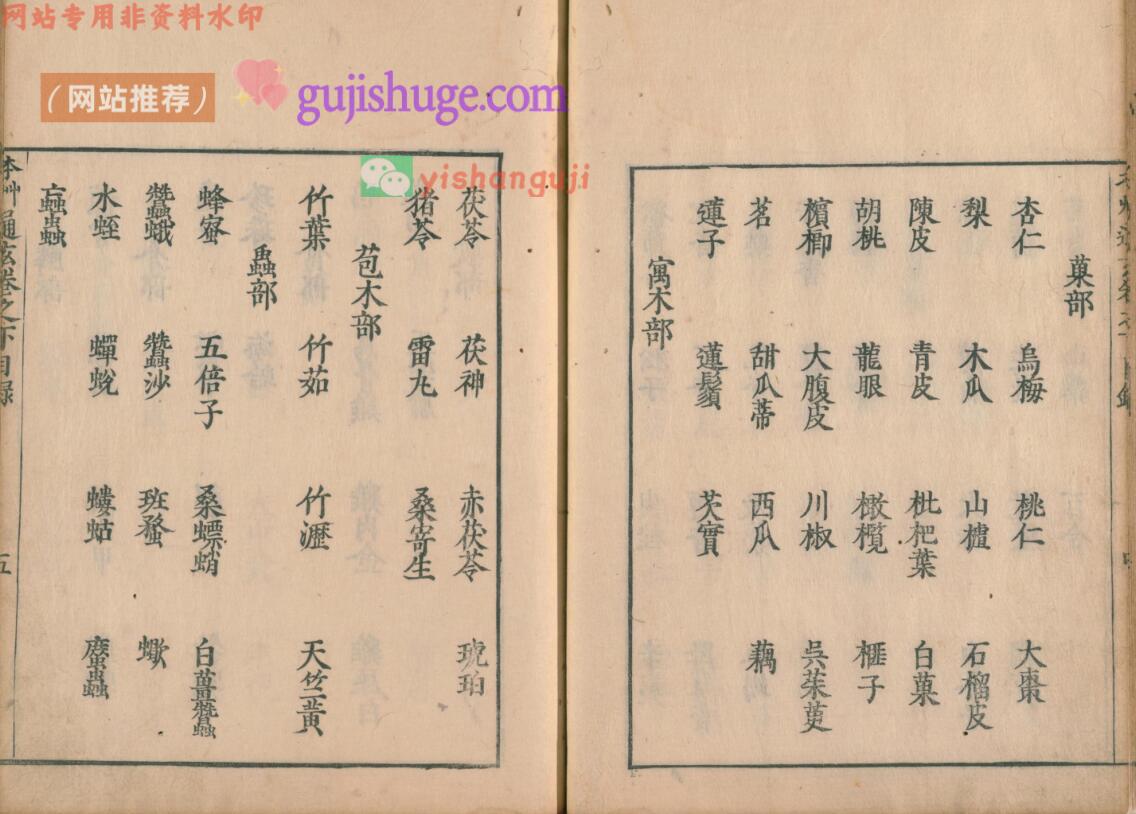 网站专用非资料水印
（网站推荐）
gujishuge.com
yishanguji
菓部
杏仁 烏梅 桃仁 大棗
梨 木瓜 山樝 石榴皮
陳皮 青皮 枇杷葉 白菓
胡桃 龍眼 橄欖 榧子
檳榔 大腹皮 川椒 吳茱萸
茗 甜瓜蒂 西瓜 藕
蓮子 蓮鬚 芡實
寓木部
茯苓 茯神 赤茯苓 琥珀
猪苓 雷丸 桑寄生
苞木部
竹葉 竹茹 竹瀝 天竺黃
蟲部
蜂蜜 五倍子 桑螵蛸 白薑蠶
蠶蛾 蠶沙 班蝥 蠍
水蛭 蟬蛻 螻蛄 䗪蟲
蝱蟲
本艸通玄卷之下目錄
五